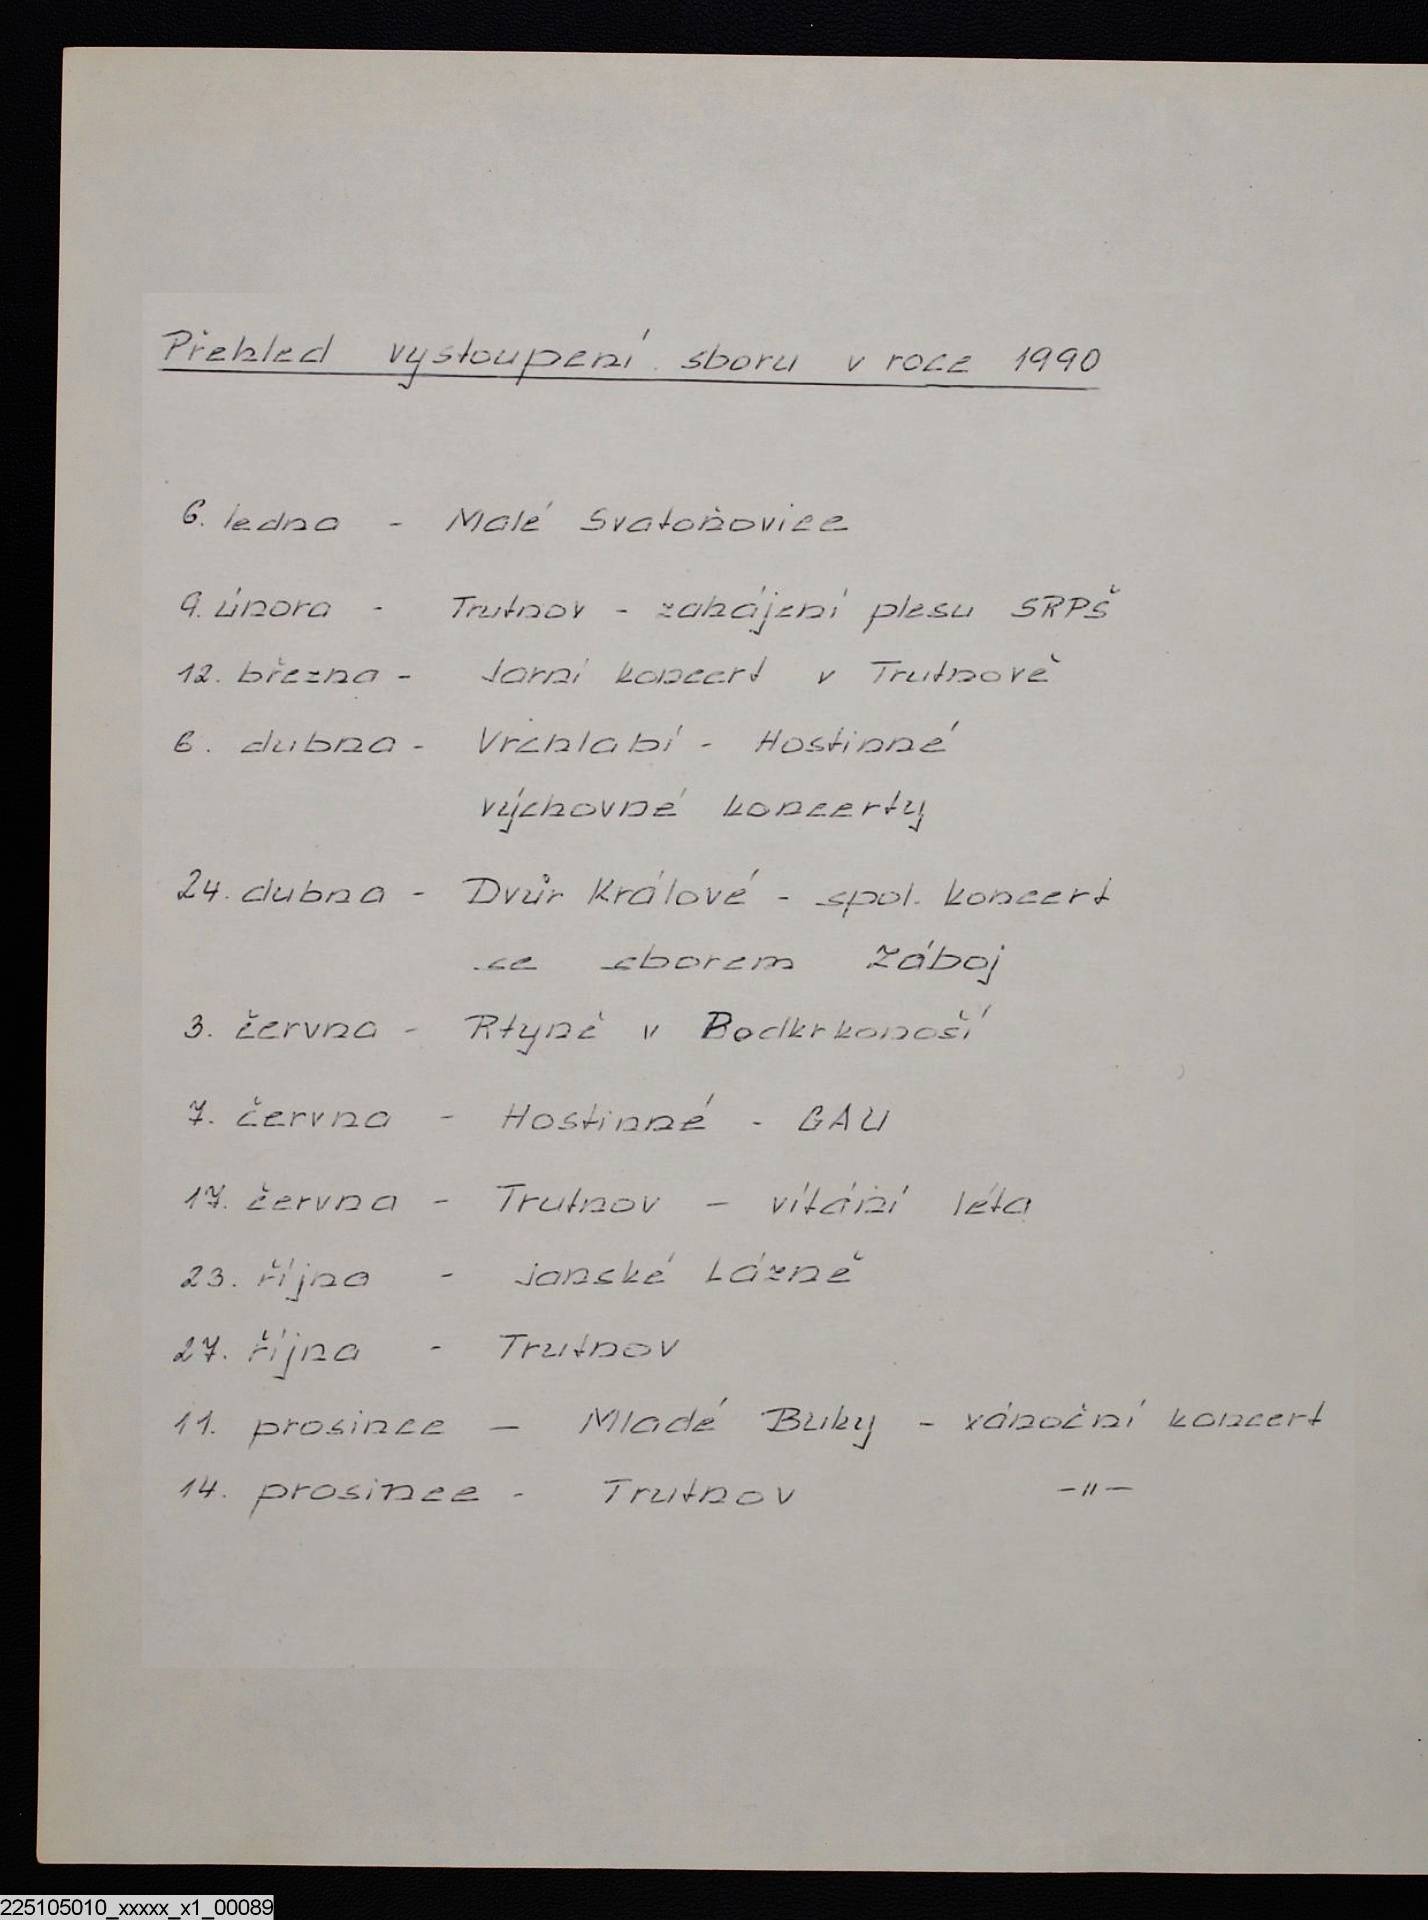 Přehled vystoupení sboru v roce 1990
6. ledna - Malé Svatoňovice
9. února - Trutnov - zahájení plesu SRPŠ
12. března - Jarní koncert v Trutnově
6. dubna - Vrchlabí - Hostinné
výchovné koncerty
24. dubna - Dvůr Králové - spol. koncert
se sborem Záboj
3. června - Rtyně v Podkrkonoší
7. června - Hostinné - GAU
17. června - Trutnov - vítání léta
23. října - Janské Lázně
27. října - Trutnov
11. prosince - Mladé Buky - vánoční koncert
14. prosince - Trutnov -"-
225105010_xxxxx_x1_00089